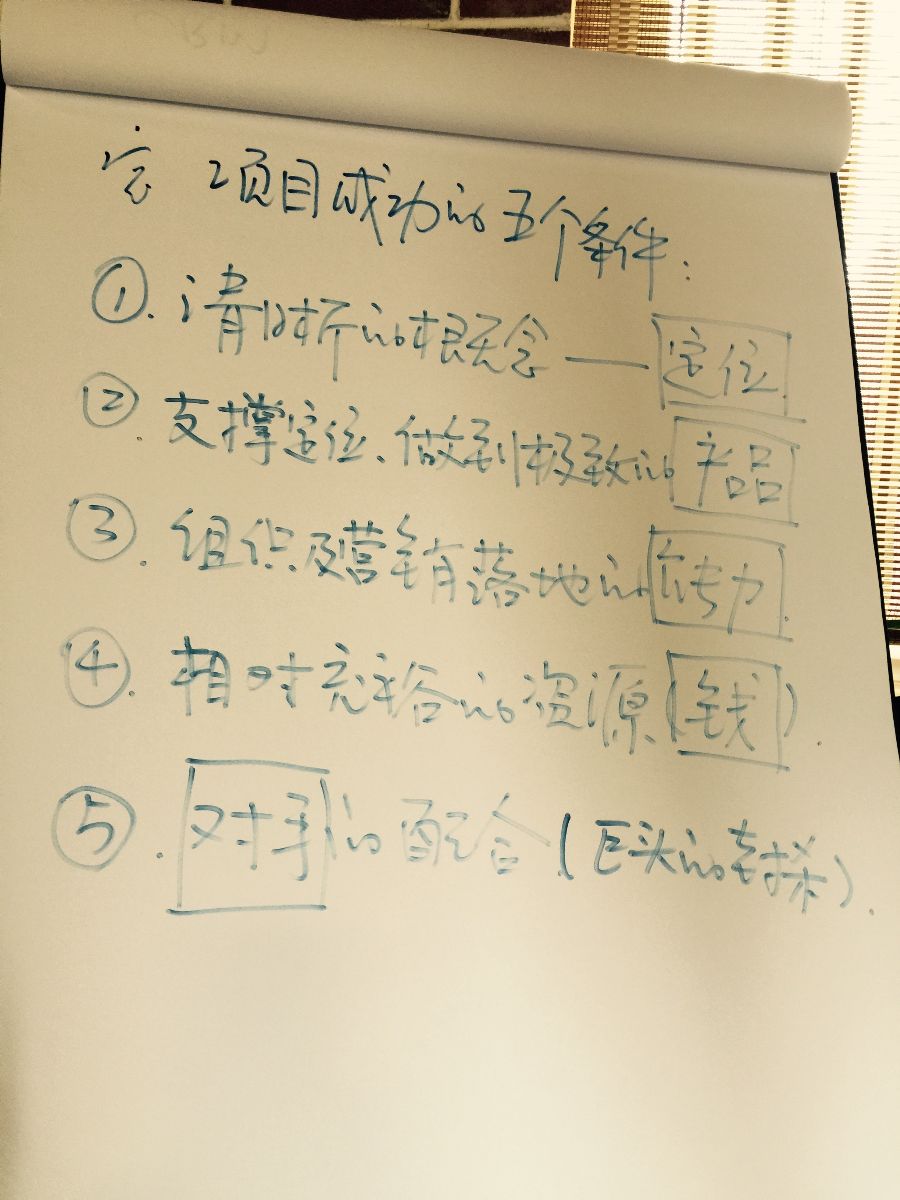 项目成功的五个条件:
①. 清晰的概念——定位
②. 支撑定位、做到极致的产品
③. 组织及营销落地的
④. 相对充裕的资源(钱).
⑤. 对手的配合(巨头的封杀).